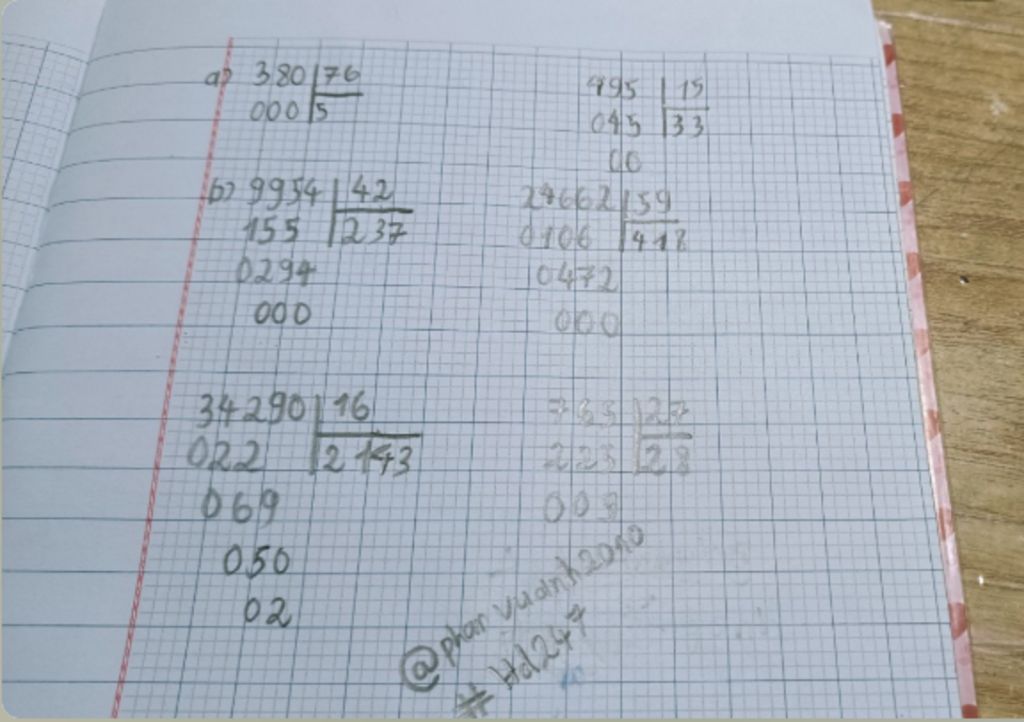 a) 380 76
000 5
495 15
045 33
00
b) 9954 42
155 237
0294
000
24662 59
0106 418
0472
000
34290 16
022 2143
069
050
02
765 27
223 28
009
@phan vuanh2010
# Hd247